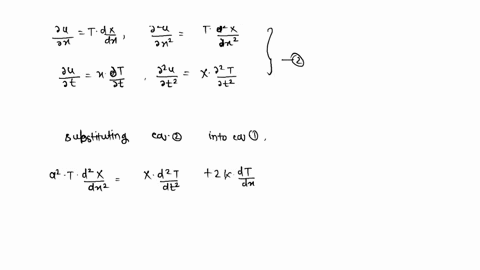 ∂u/∂x = T · dX/dx , ∂²u/∂x² = T · d²X/dx²
∂u/∂t = x · ∂T/∂t . ∂²u/∂t² = X · ∂²T/∂t² } —②
substituting eq.② into eq①,
a² · T · d²X/dx² = X · d²T/dt² + 2k · dT/dx